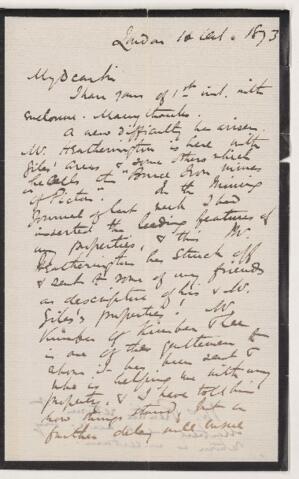 London 10 Oct. 1873
My Dear Sir
I have yours of 1st inst. with
enclosure. Many thanks.
A new difficulty has arisen.
Mr. Heatherington is here with
Giles's areas & some others which
he calls the "Bruce Iron Mines
of Pictou". In the Mining
Journal of last week I had
inserted the leading features of
my properties, & this Mr.
Heatherington has struck off
& sent to some of my friends
as descriptive of his & Mr.
Giles's properties. Mr.
Kimber of Kimber & Lee
is one of the gentlemen to
whom it has been sent &
who is helping me with my
property, & I have told him
how things stand, but a
further delay will ensue